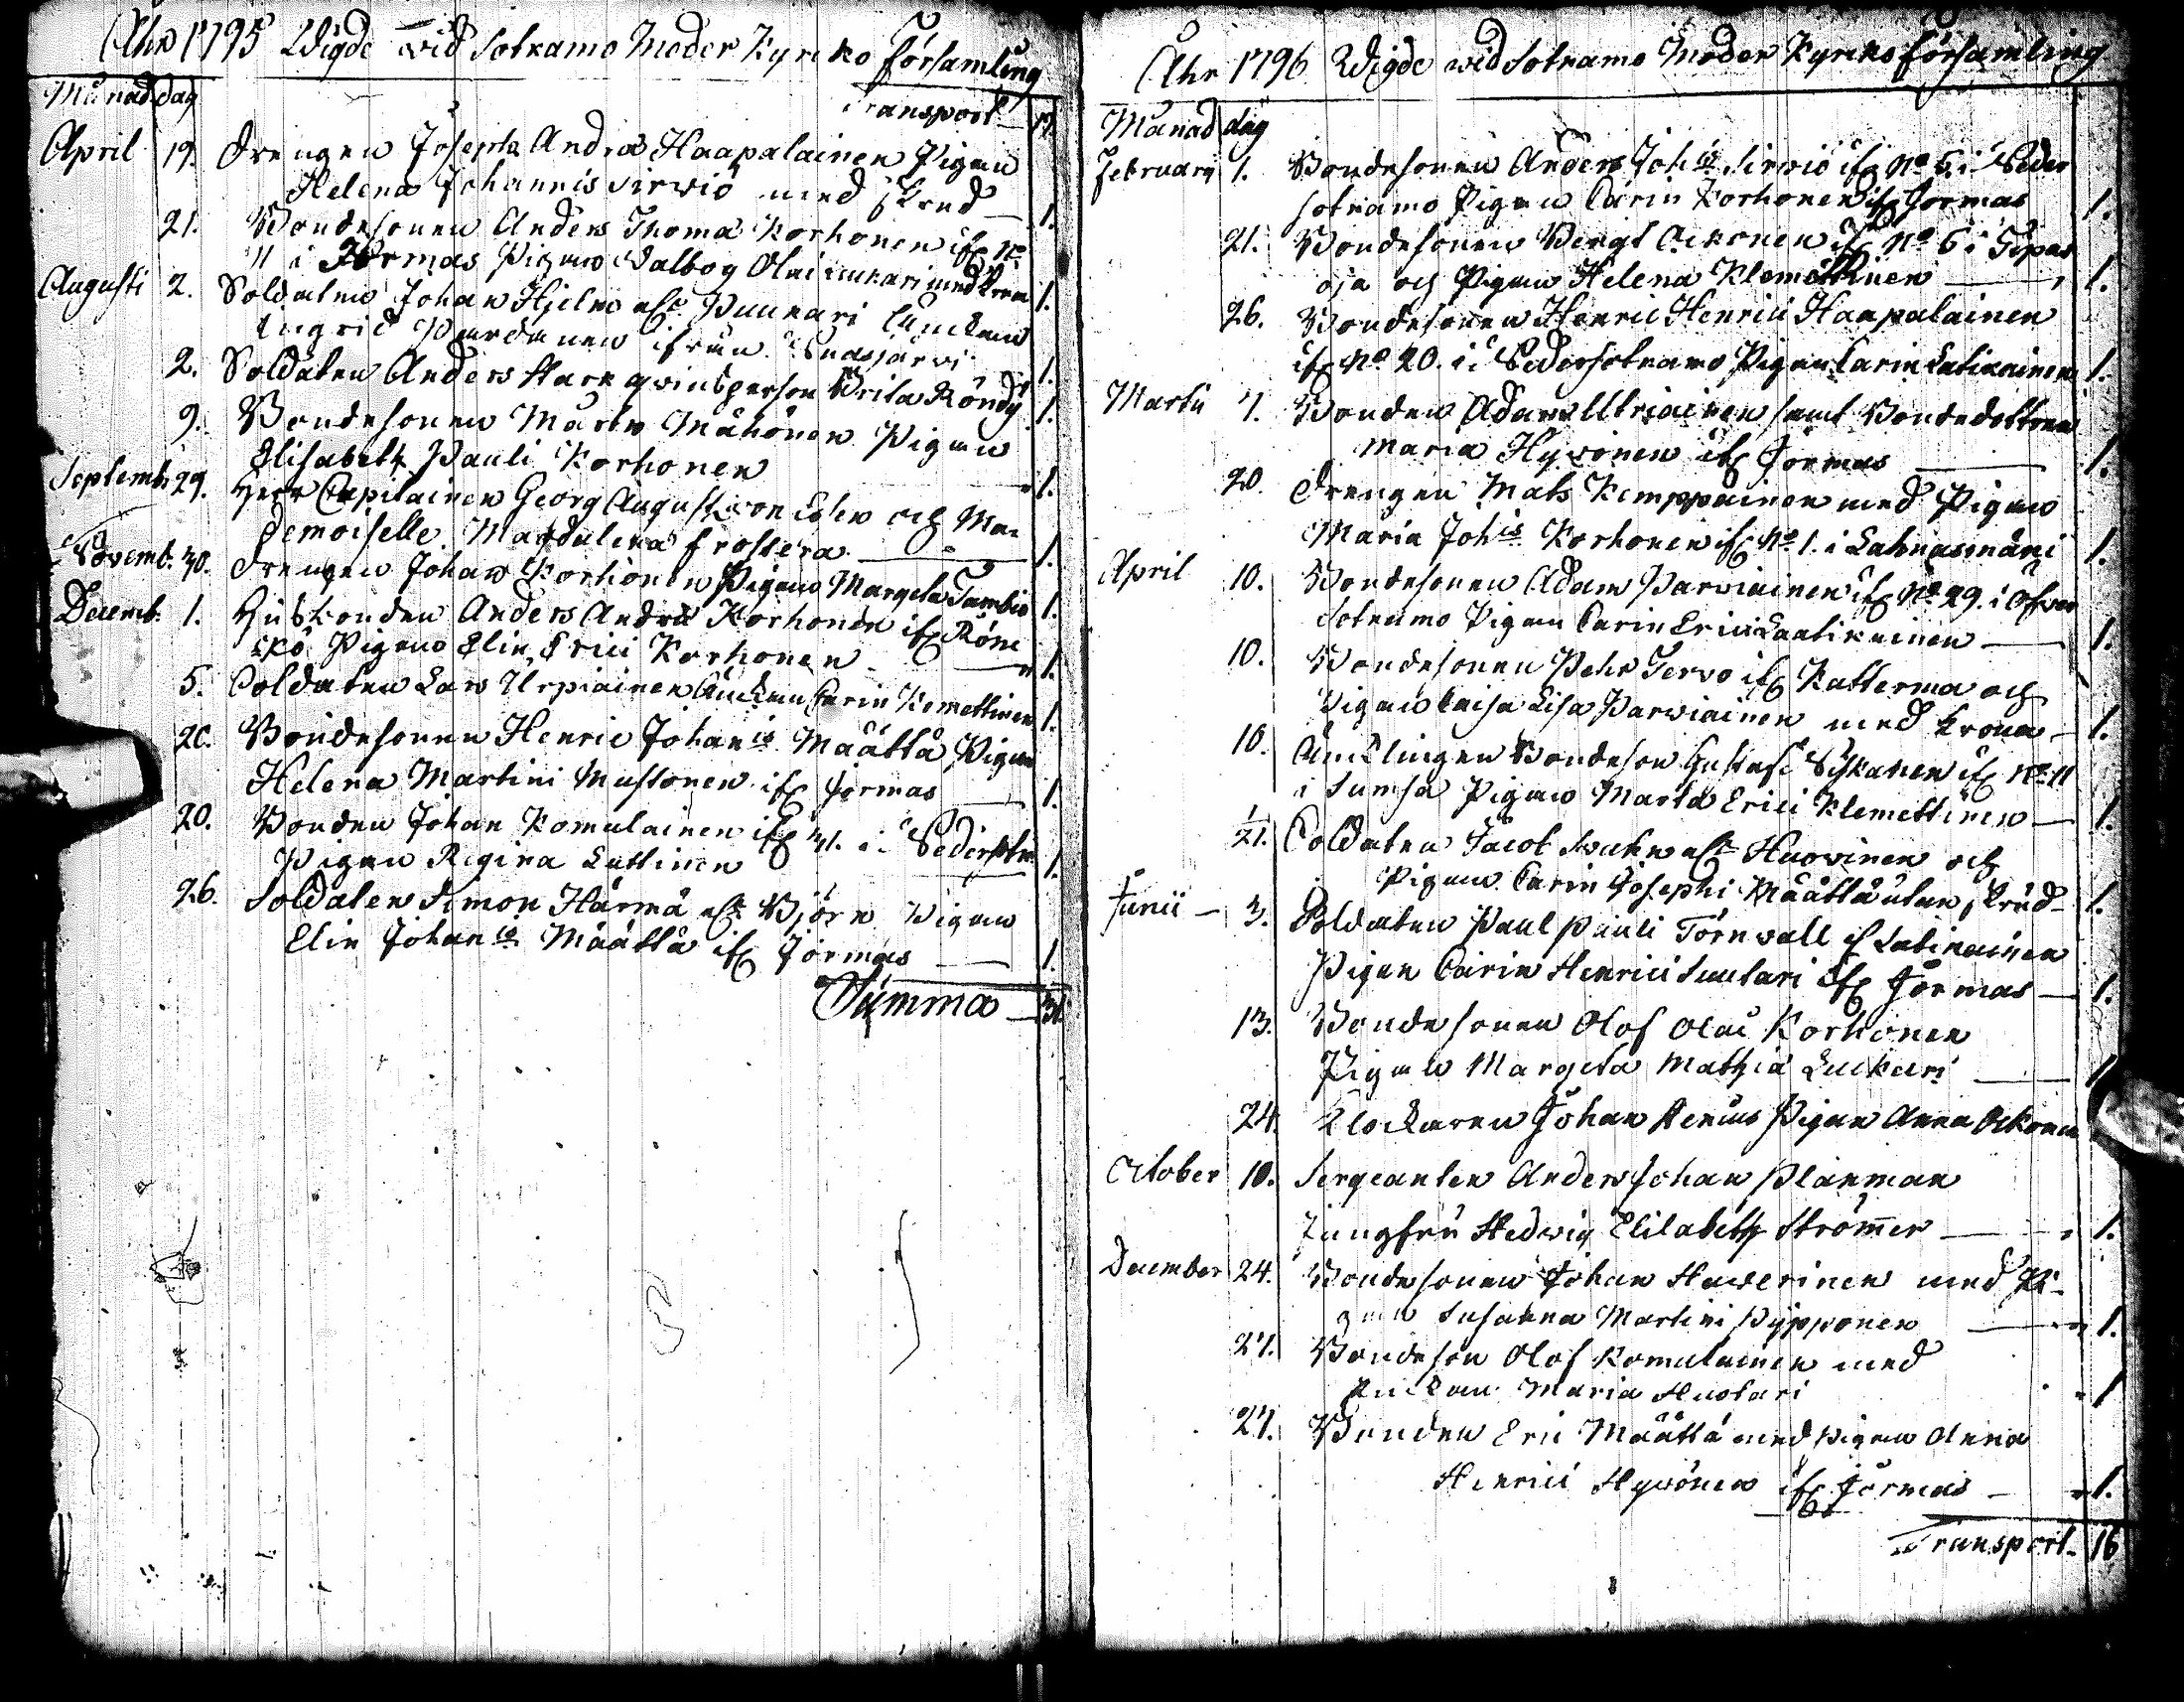 Åhr 1795 Wigde wid Sotkamo Moder Kyrcko församling
Månad dag
Transport 17.
April 19. Drengen Joseph Andreæ Haapalainen Pigan
Helena Johannis Sirviö med skrud 1.
21. Bondesonen Anders Thomæ Korhonen if. No
11 i Jormas Pigan Valbog Olai med krona 1.
Augusti 2. Soldaten Johan Hjelm alt Puukari Änckan
Ingrid ifrån 1.
2. Soldaten Anders Stark qvinsperson Brita Röndy 1.
9. Bondesonen Mårten Mähönen Pigan
Elisabeth Pauli Korhonen 1.
Septemb. 29. Herr Capitainen Georg August von Essen och Ma-
demoiselle Magdalena Frosterå 1.
Novemb. 30. Drengen Johan Korhonen Pigan Margeta Tambio 1.
Decemb. 1. Husbonden Anders Andreæ Korhonen if.
Pigan Elin Erici Korhonen 1.
5. Soldaten Lars Urpiainen Änckan Carin Kemettinen 1.
20. Bondesonen Henric Johanis Määttä Pigan
Helena Martini Mustonen if. Jormas 1.
20. Bonden Johan Komulainen if. 31. i Nedersotk.
Pigan Regina Luttinen 1.
26. Soldaten Simon Härmä alt Björn Pigan
Elin Johanis Määttä if. Jormas 1.
Summa 31.
Åhr 1796 Wigde wid Sotkamo Moder Kyrko församling
Månad dag
Februarii 1. Bondesonen Anders Johis Sirviö if. No 6. i Neder
sotkamo Pigan Carin Korhonen if. Jormas 1.
21. Bondesonen Bengt Ockonen if. No 6 i Tipas
oja och Pigan Helena Klemettinen 1.
26. Bondesonen Henric Henrici Haapalainen
if. No 20. i Nedersotkamo Pigan Carin Latikainen 1.
Martii 7. Bonden Adam Utriainen samt Bondedottren
Maria Hyvönen if. Jormas 1.
20. Drengen Mats Kemppainen med Pigan
Maria Johis Korhonen if. No 1. i Lahnasmäki 1.
April 10. Bondesonen Adam Parviainen if. No 29. i Öfver
Sotkamo Pigan Carin Erici Laatikainen 1.
10. Bondesonen Pehr Tervo if. Katterma och
Pigan Caisa Lisa Parviainen med krona 1.
10. Äncklingen Bondeson Gustaf if. No 11
i Sumsa Pigan Marta Erici Klemettinen 1.
21. Soldaten Jacob alt Huovinen och
Pigan Carin Josephi Määttä utan skrud 1.
Junii 3. Soldaten Paul Pauli Törnvall if Latikainen
Pigan Carin Henrici Suutari if. Jormas 1.
13. Bondesonen Olof Olai Korhonen
Pigan Margeta Mathiæ Luckari 1
24. Klockaren Johan Pigan Anna Ockonen
October 10. Sergeanten Anders Johan Planman
Jungfru Hedvig Elisabeth Strömer 1.
December 24. Bondesonen Johan Haverinen med Pi-
gan Susanna Martini Pypponen 1.
27. Bondeson Olof Komulainen med
Änckan Maria Huotari 1
27. Bonden Eric Määttä med Pigan Anna
Henrici Hyvönen if. Jormas 1.
Transport 16